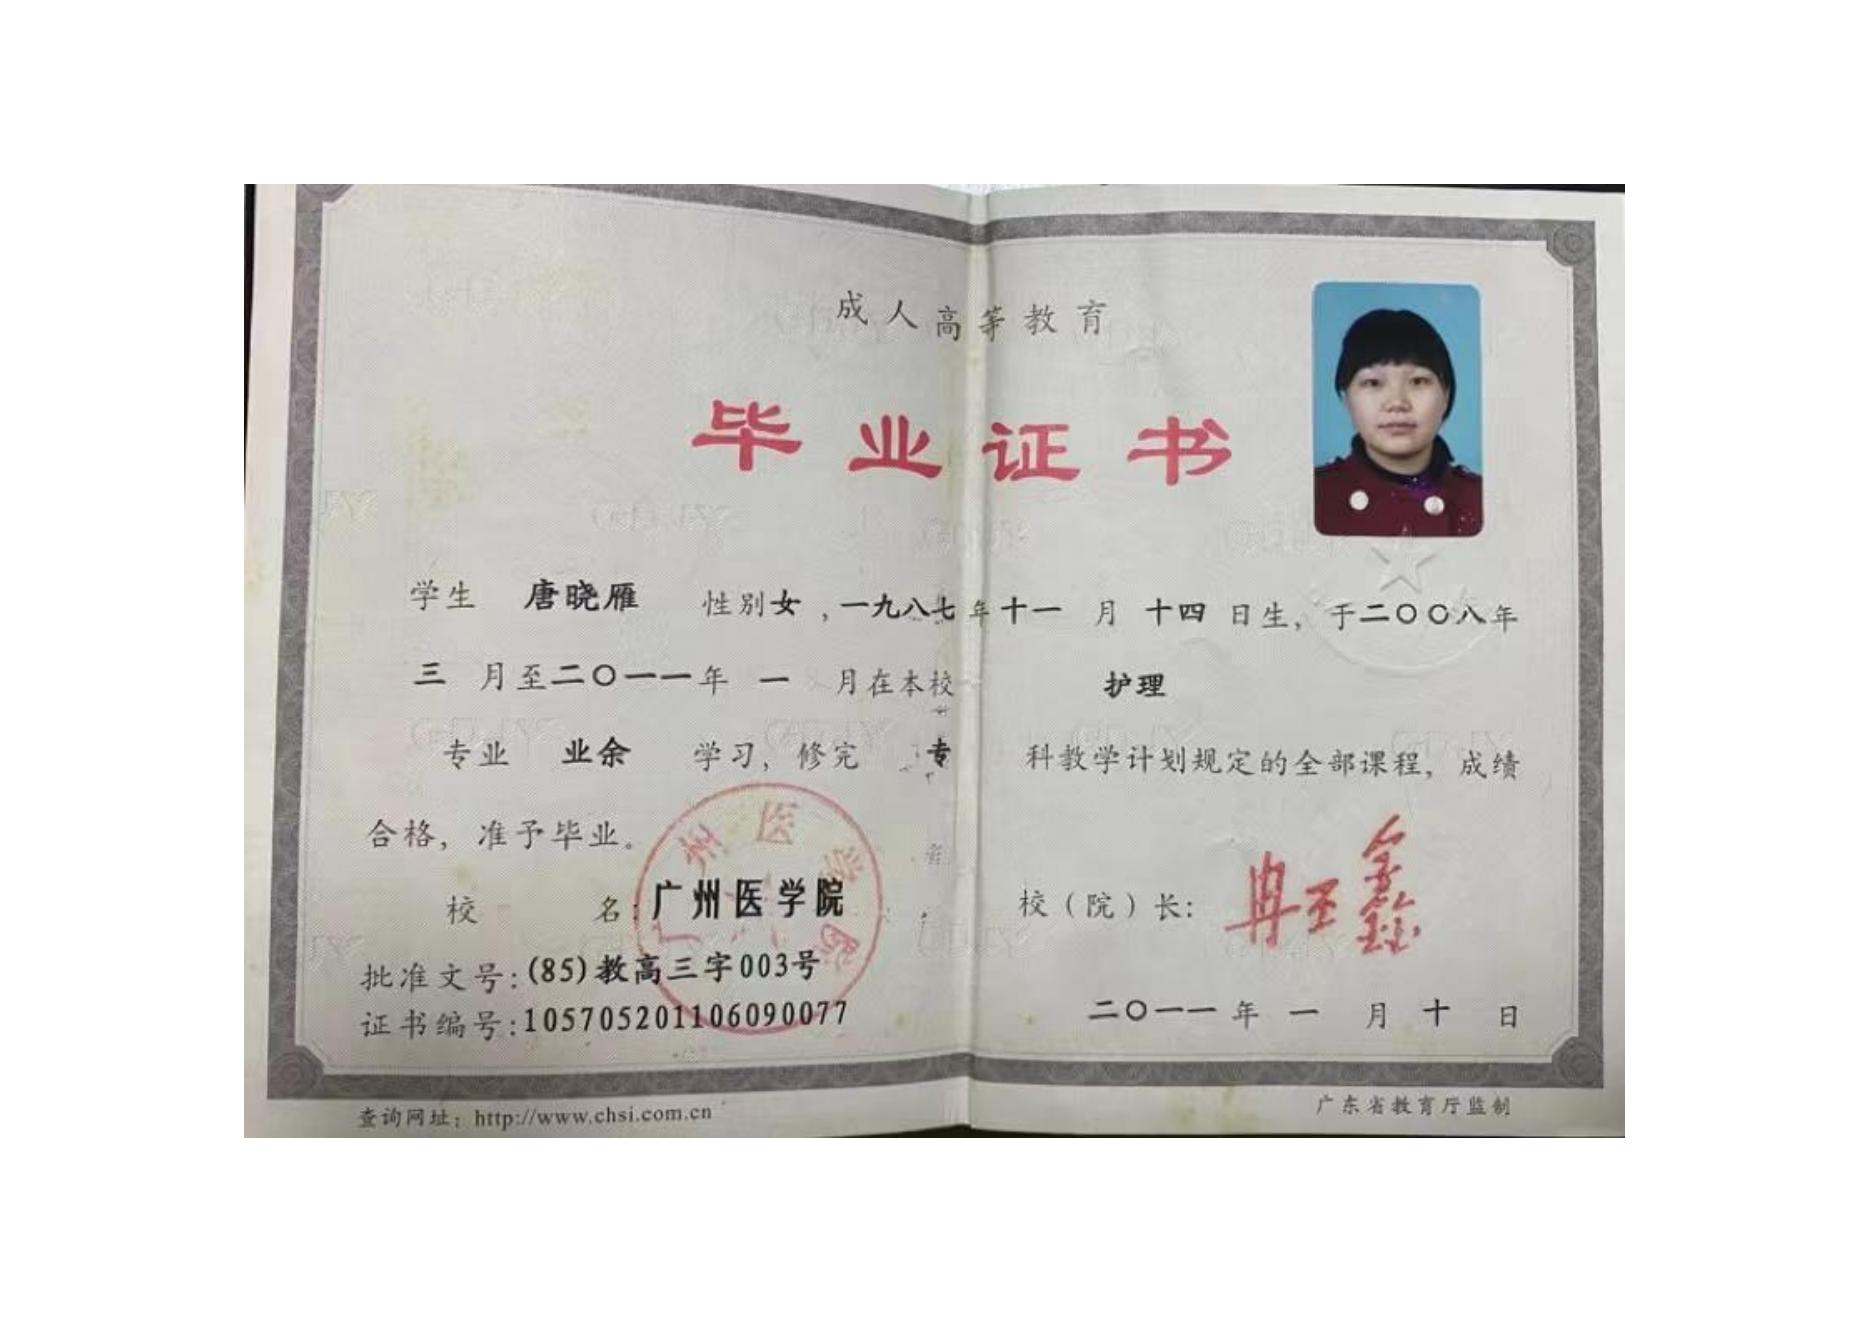 成人高等教育
毕业证书
学生 唐晓雁 性别女,一九八七年十一月十四日生,于二〇〇八年
三月至二〇一一年一月在本校 护理
专业 业余 学习,修完 专科教学计划规定的全部课程,成绩
合格,准予毕业。
广州医学院
校 名:广州医学院
校(院)长:
批准文号:(85)教高三字003号
证书编号:105705201106090077
二〇一一年一月十日
查询网址:http://www.chsi.com.cn
广东省教育厅监制